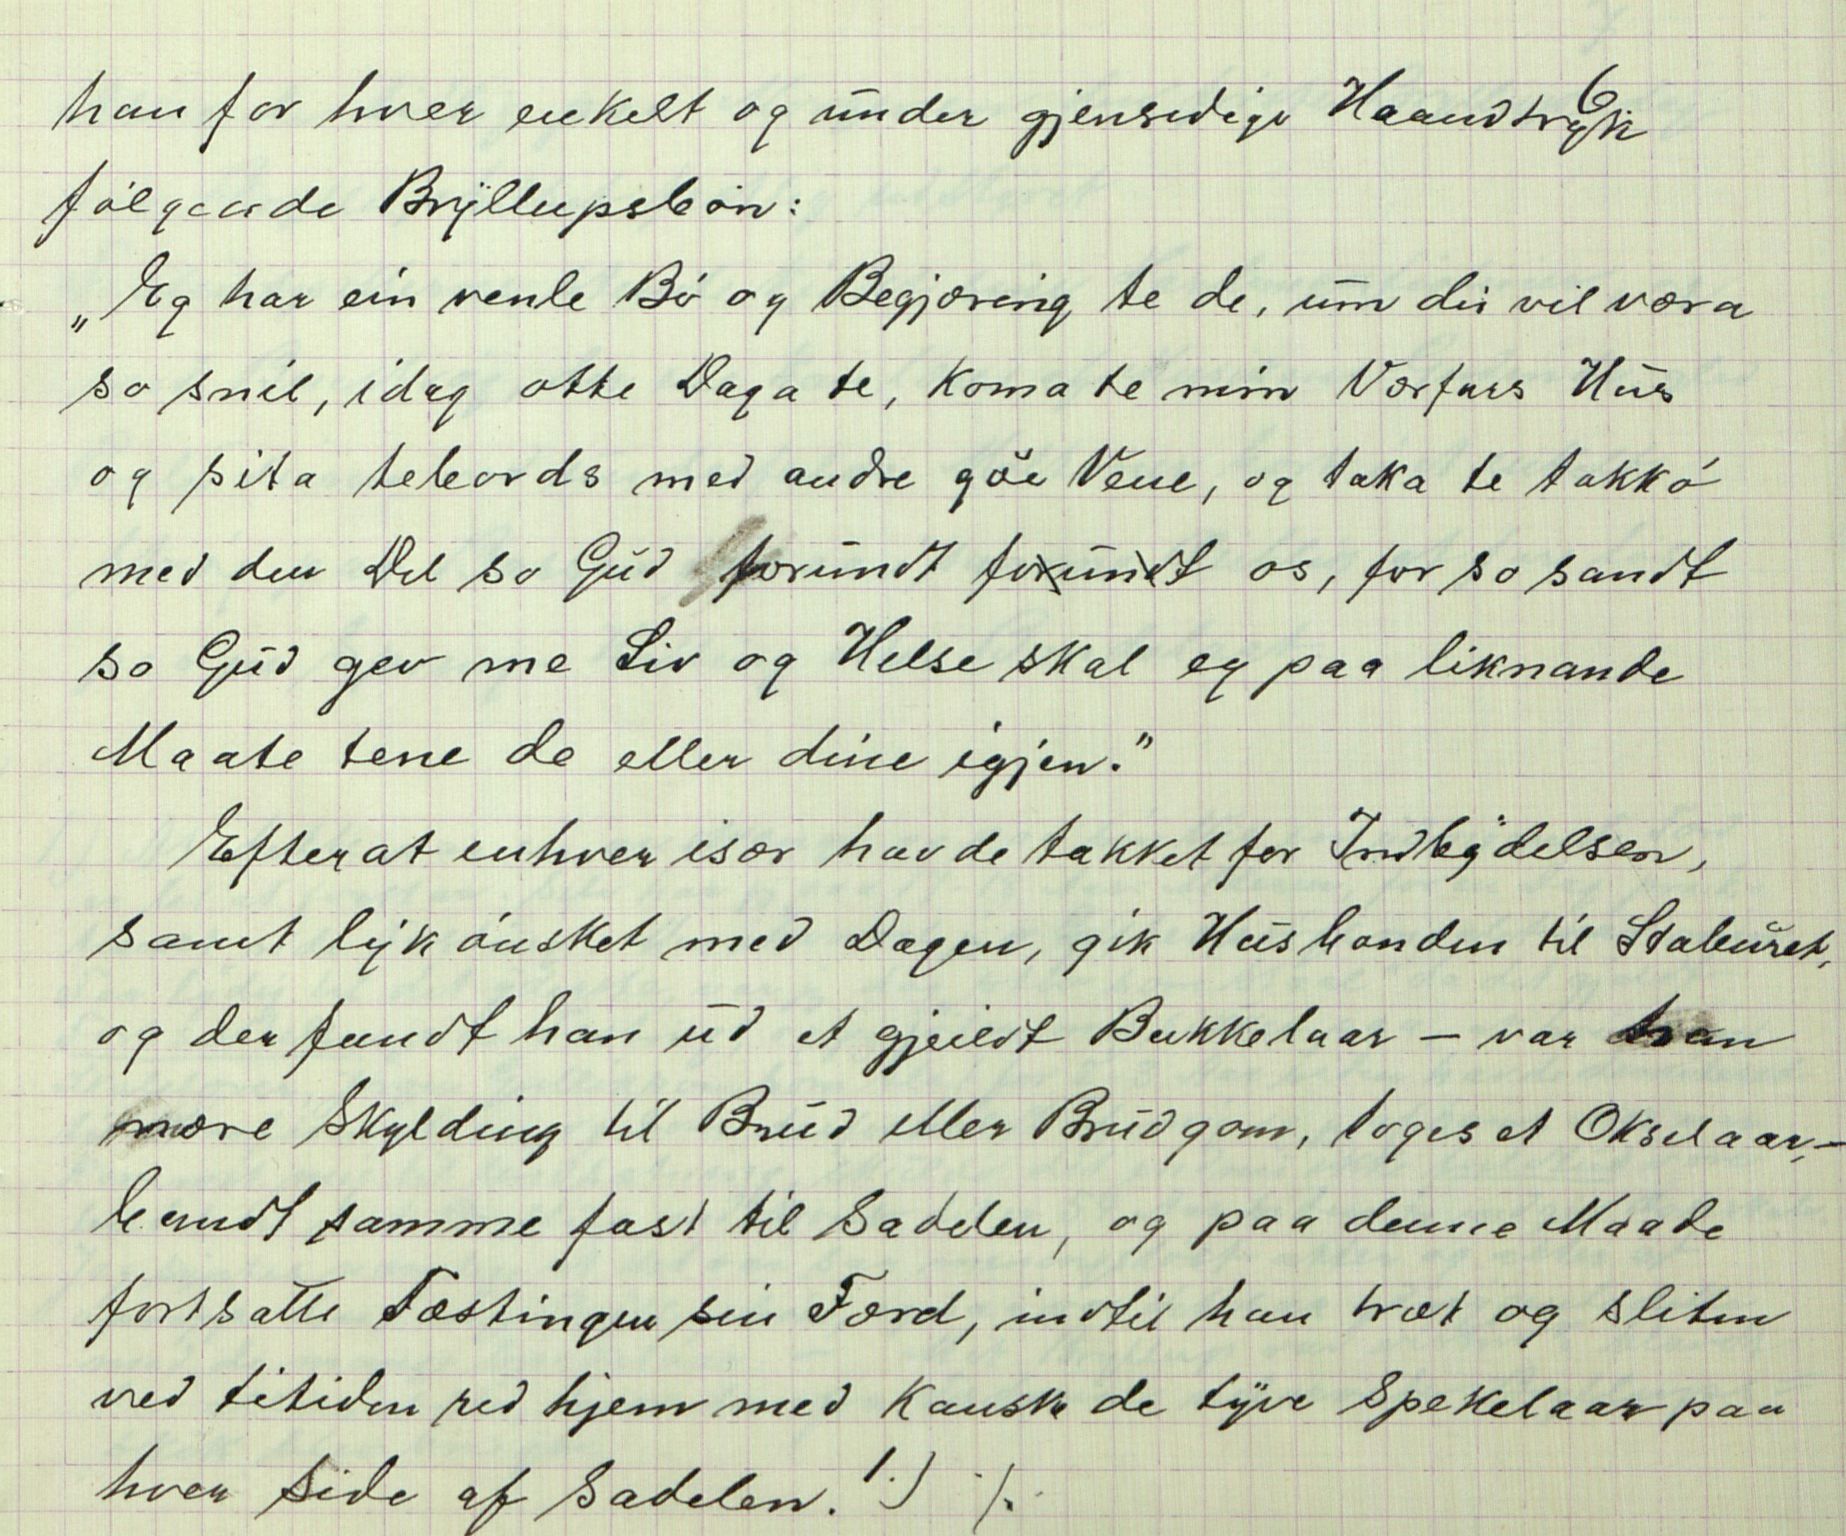 6
han for hver enkelt og under gjensidige Haandtryk
følgende Bryllupsbøn:
„Eg har ein venle Bø og Begjæring te de, um du vil væra
so snil, idag otte Daga te, koma te min Værfars Hus
og sita tebords med andre gøe Vene, og taka te takkó
med den Del so Gud forundt forundt os, for so sandt
so Gud gev me Liv og Helse skal eg paa liknande
Maate tene de eller dine igjen."
Efterat enhver især havde takket for Indbydelsen,
samt lykønsket med Dagen, gik Husbonden til Staburet,
og der fandt han ud et gjeildt Bukkelaar – var han
nære Skylding til Brud eller Brudgom, toges et Okselaar, –
bandt samme fast til Sadelen, og paa denne Maade
fortsatte Fæstingen sin Færd, indtil han træt og sliten
ved titiden red hjem med kanske de tyve Spekelaar paa
hver Side af Sadelen. 1.) ./.